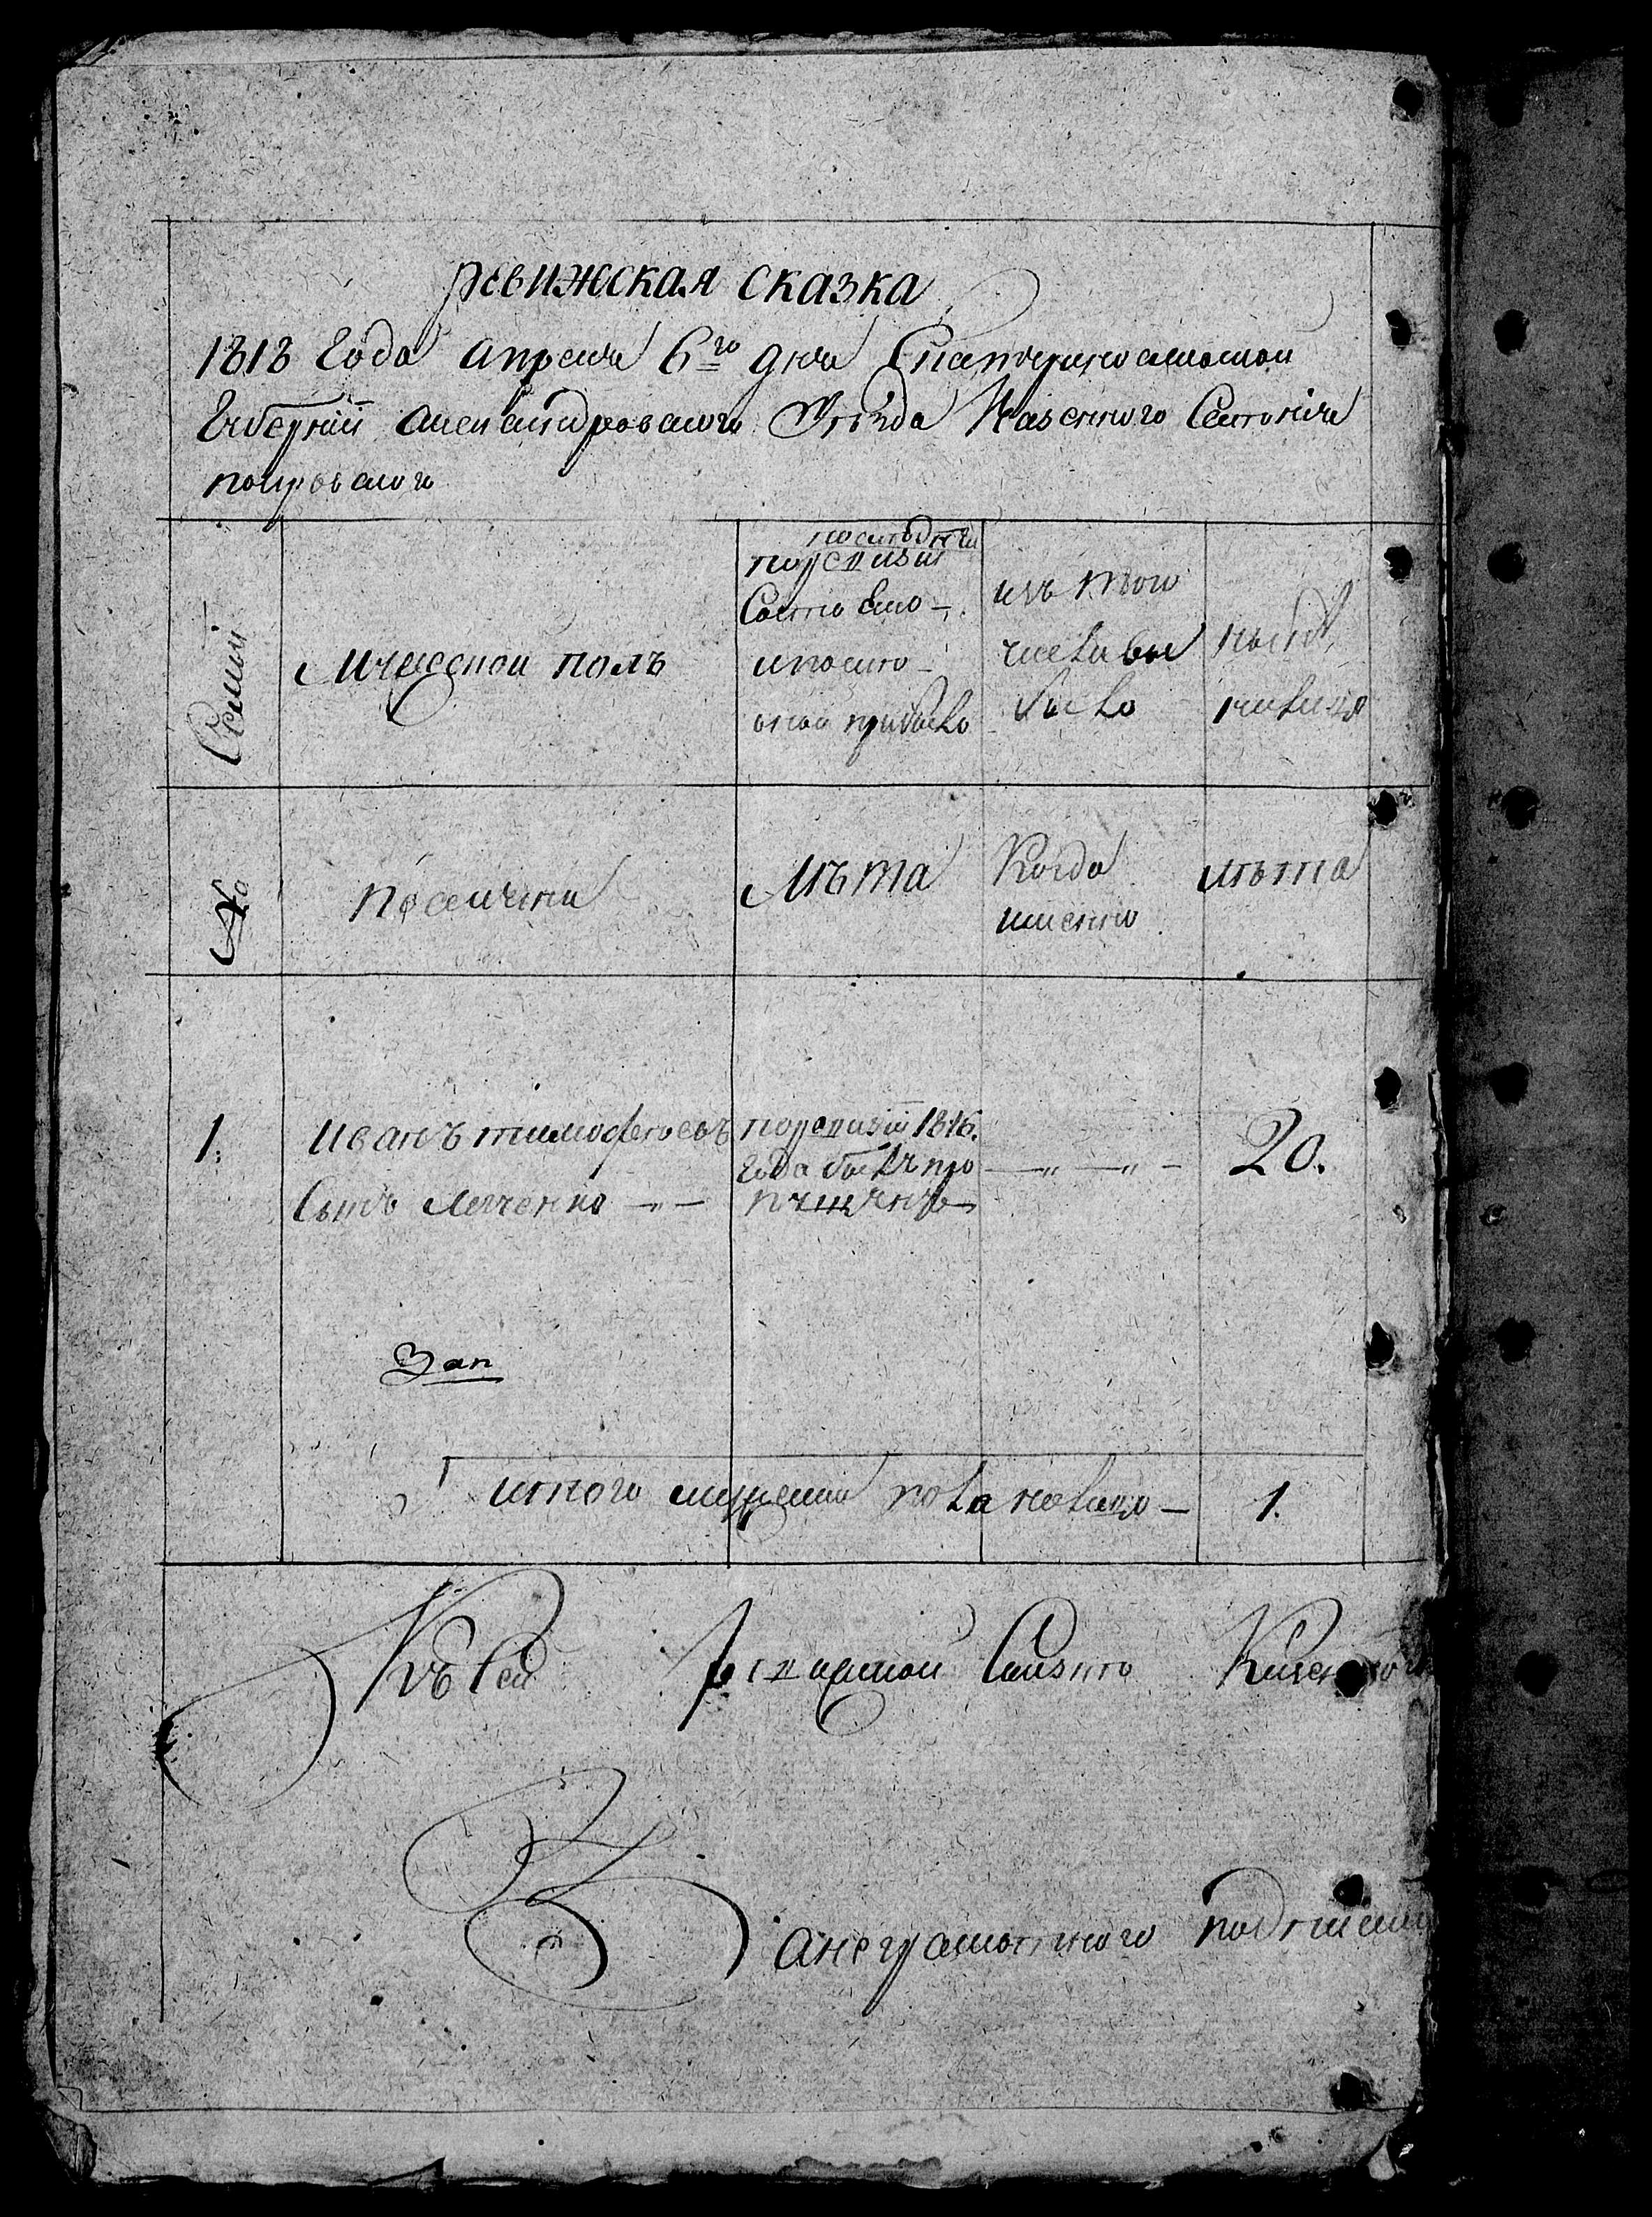 ревижская сказка
1818 года апреля 6го дня Екатеринославской
Губернии Александровского Уезда Казенного Селения
покровского
Семьи
Мужеской полъ
последней
поревизии
Состояло
ипосле
оной прибыло
изъ того
числа вы
было
ныне
налицо
№
поселяни
Лѣта
Когда
именно
лѣта
1.
Иванъ тимофеевъ
Сынъ Левченко
поревизии 1816.
года былъ про
пущенъ
20.
Зап
итого мужеска пола налицо
1.
Къ сей ревижской Сказке Казенного
Занеграмотного